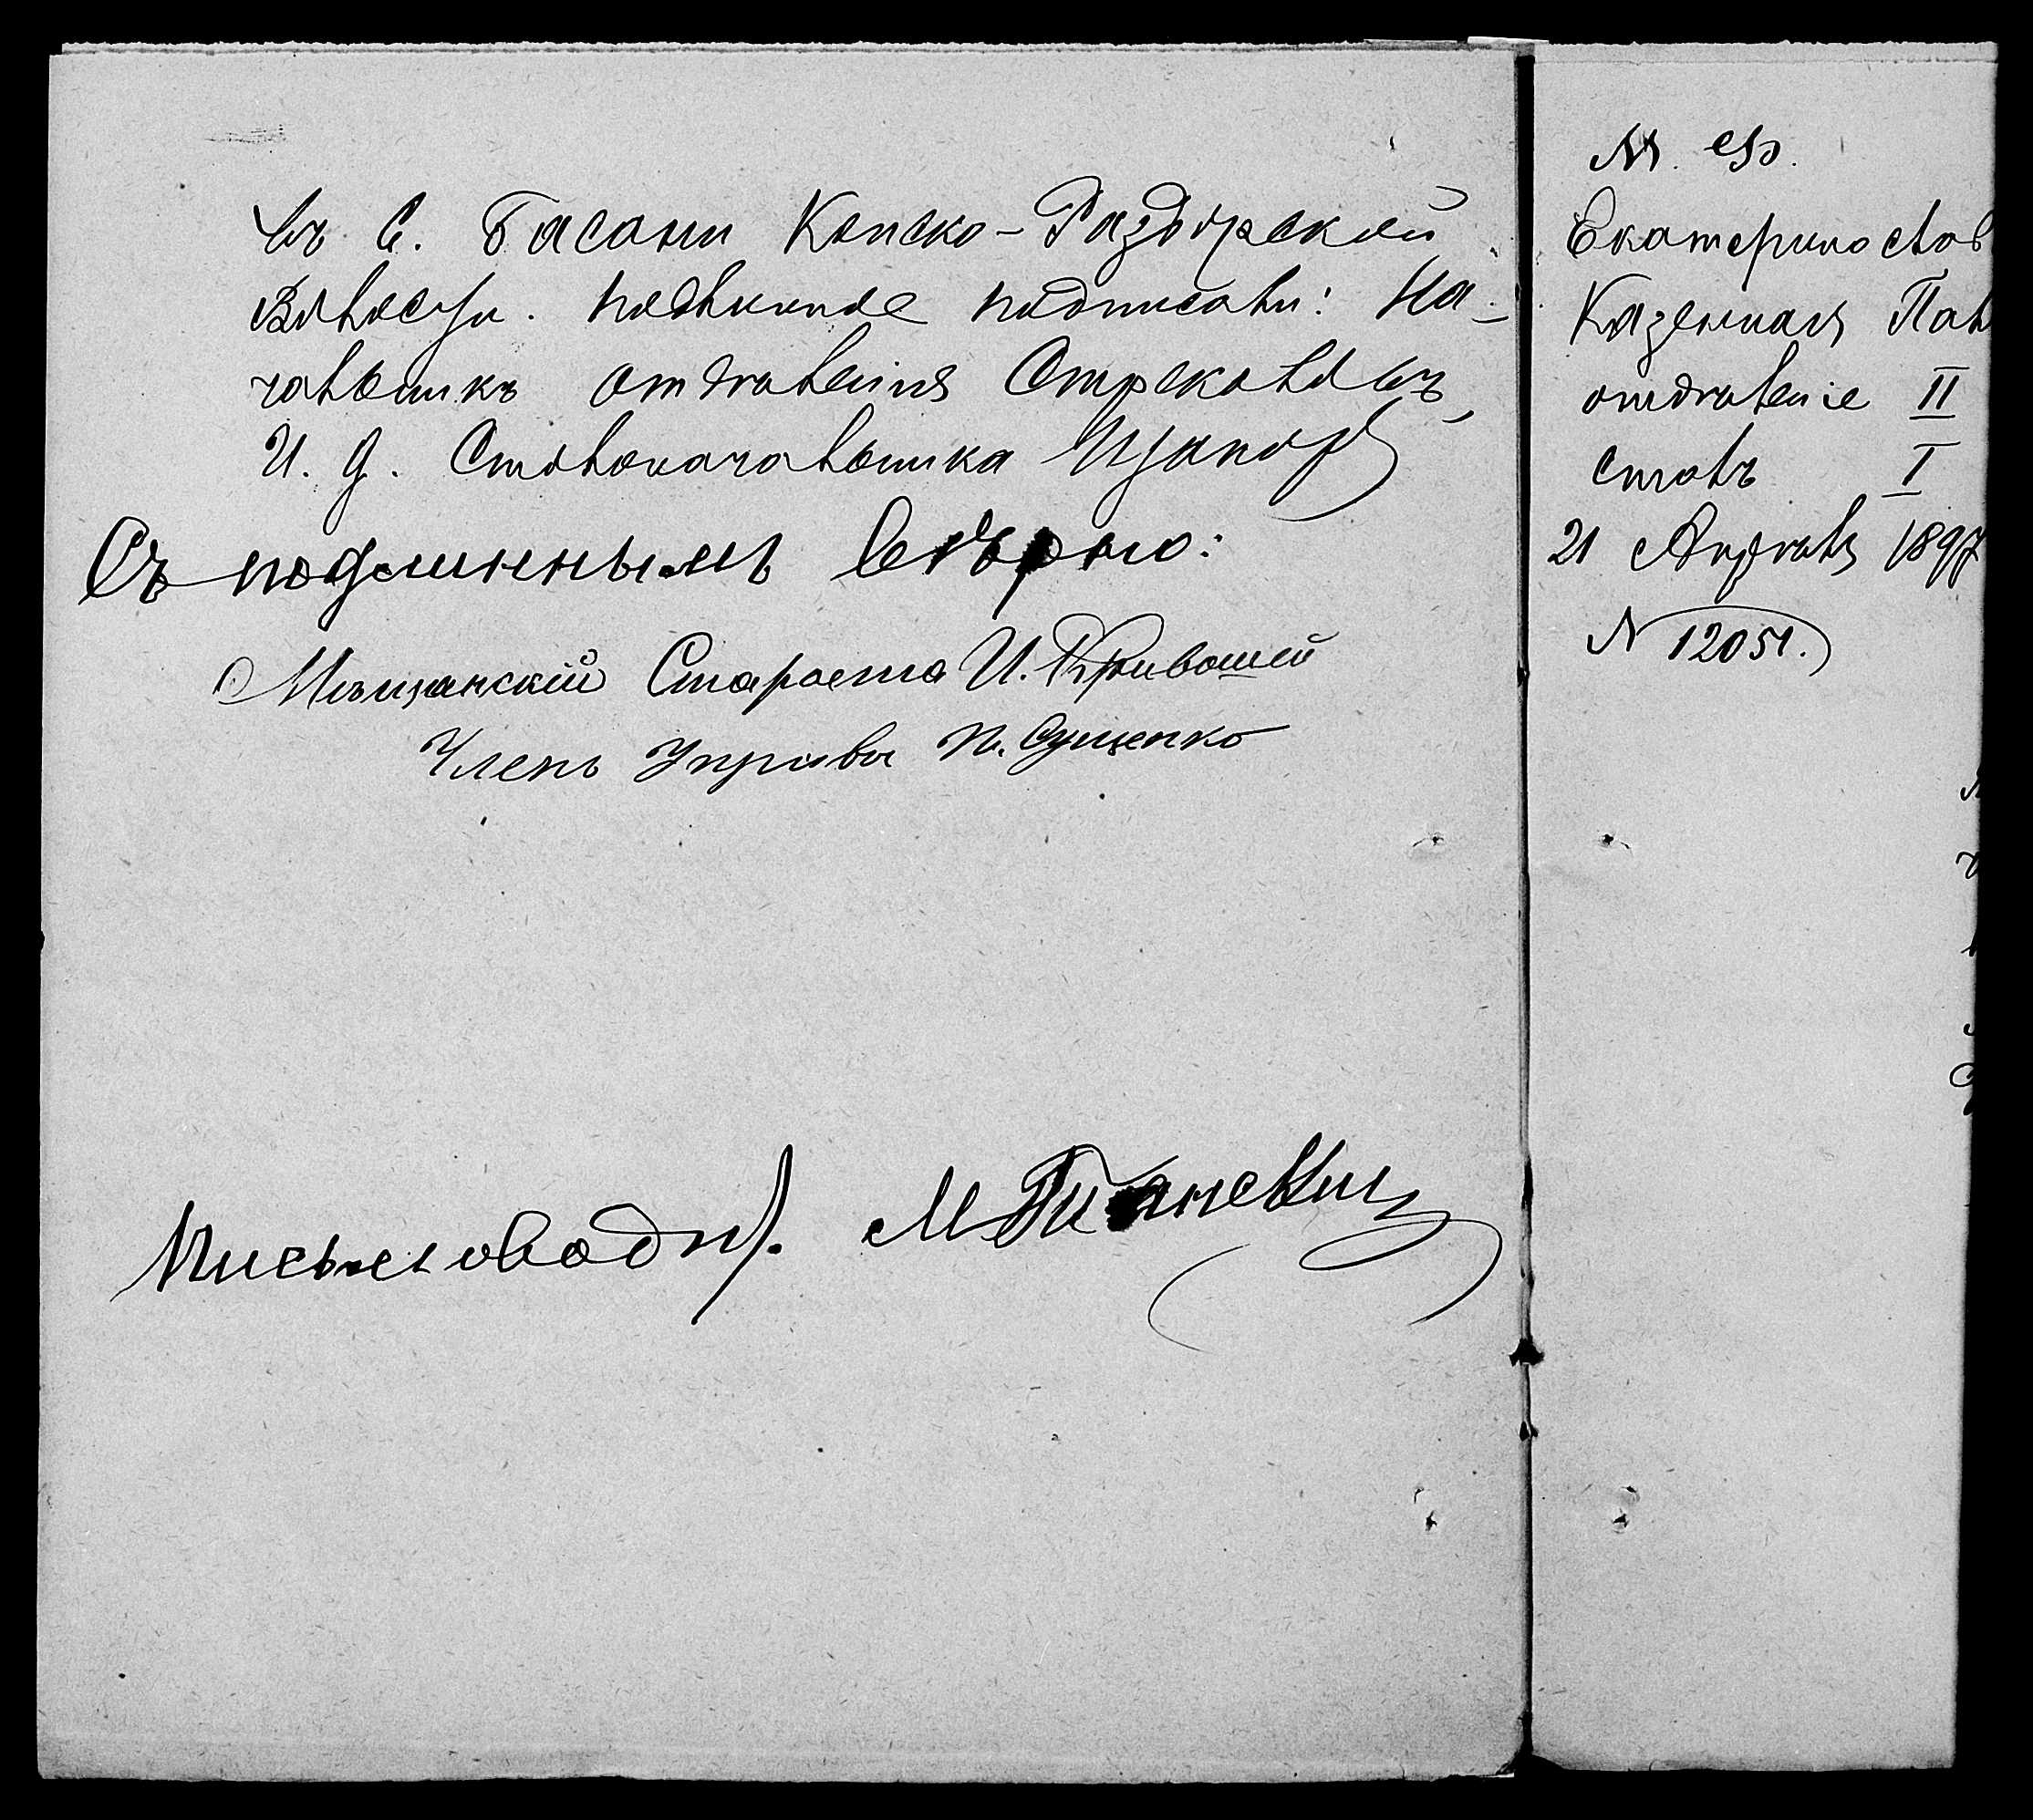 въ С. Басани Конско-Раздорской
Волости. подлинное подписали: На-
чальникъ отдѣленія Стрекаловъ,
И. Д. Столоначальника
Съ подлиннымъ вѣрно:
Мѣщанскій Староста И. Кривошей
Членъ Управы П. Сущенко
Письмоводит. М.
М. Ф.
Екатеринослав
Казенная Пал
отдѣленіе II
столъ I
21 Апрѣля 1897
N 12051.